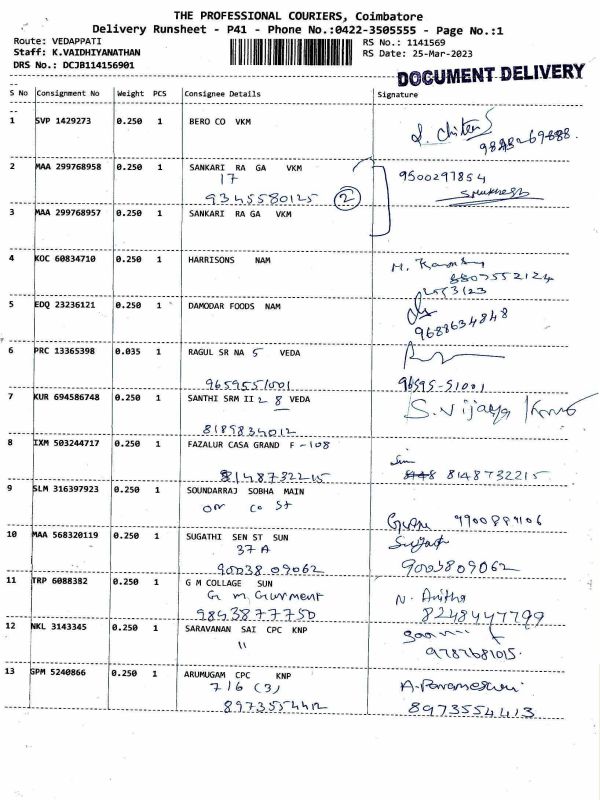 THE PROFESSIONAL COURIERS, Coimbatore
Delivery Runsheet - P41 - Phone No.:0422-3505555 - Page No.:1
Route: VEDAPPATI
RS No.: 1141569
Staff: K.VAIDHIYANATHAN
RS Date: 25-Mar-2023
DRS No.: DCJB114156901
DOCUMENT DELIVERY
S No Consignment No Weight PCS Consignee Details Signature
1 SVP 1429273 0.250 1 BERO CO VKM
2 MAA 299768958 0.250 1 SANKARI RA GA VKM
17 9500297854
9345580125 2
3 MAA 299768957 0.250 1 SANKARI RA GA VKM
4 KOC 60834710 0.250 1 HARRISONS NAM
8807552124
5 EDQ 23236121 0.250 1 DAMODAR FOODS NAM
9688634848
6 PRC 13365398 0.035 1 RAGUL SR NA 5 VEDA
9659551001 96595-51001
7 KUR 694586748 0.250 1 SANTHI SRM II 2 8 VEDA
S.Vijaya
8189834012
8 IXM 503244717 0.250 1 FAZALUR CASA GRAND F-108
8148732215 8148732215
9 SLM 316397923 0.250 1 SOUNDARRAJ SOBHA MAIN
on co St
10 MAA 568320119 0.250 1 SUGATHI SEN ST SUN
37 A
9003809062 9003809062
11 TRP 6088382 0.250 1 G M COLLAGE SUN
N. Anitha
9843877750 8248447799
12 NKL 3143345 0.250 1 SARAVANAN SAI CPC KNP
"
9787681015
13 GPM 5240866 0.250 1 ARUMUGAM CPC KNP
716 (3) A. Parameswari
8973554412 8973554413